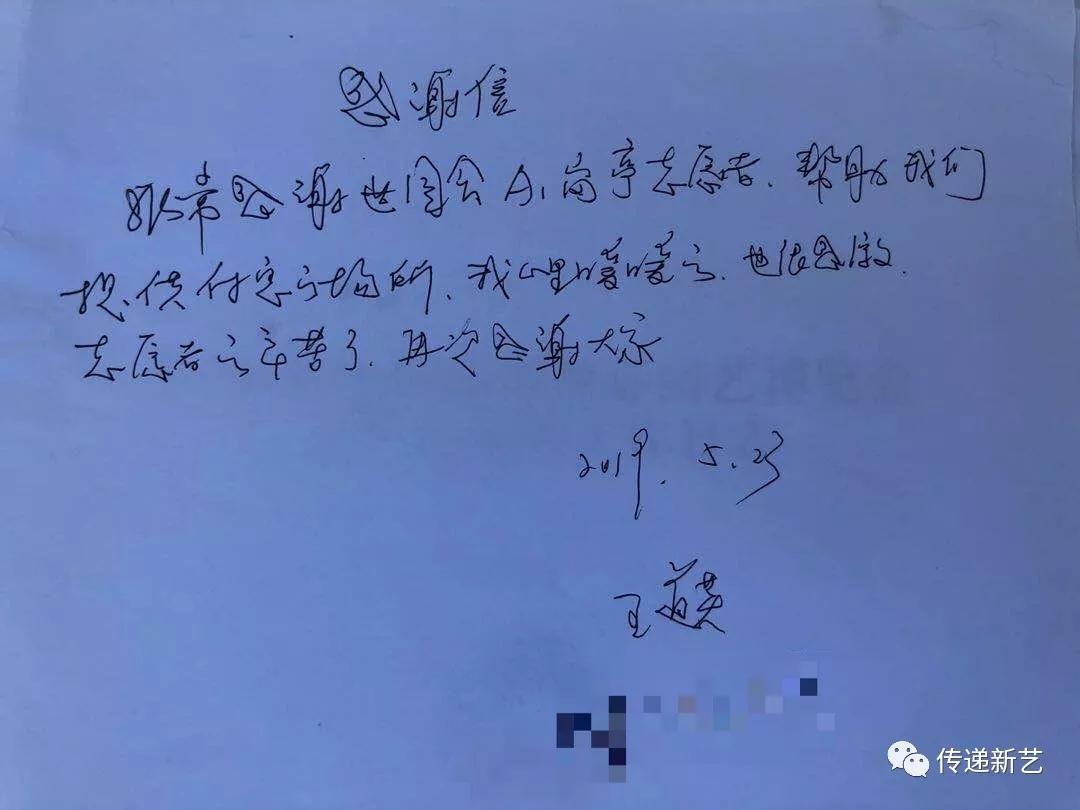 感谢信
非常感谢世园会A1岗亭志愿者、帮助我们
提供休息的场所、我心里暖暖的、也很感激、
志愿者们辛苦了、再次感谢大家
2019.5.23
王道英
传递新艺